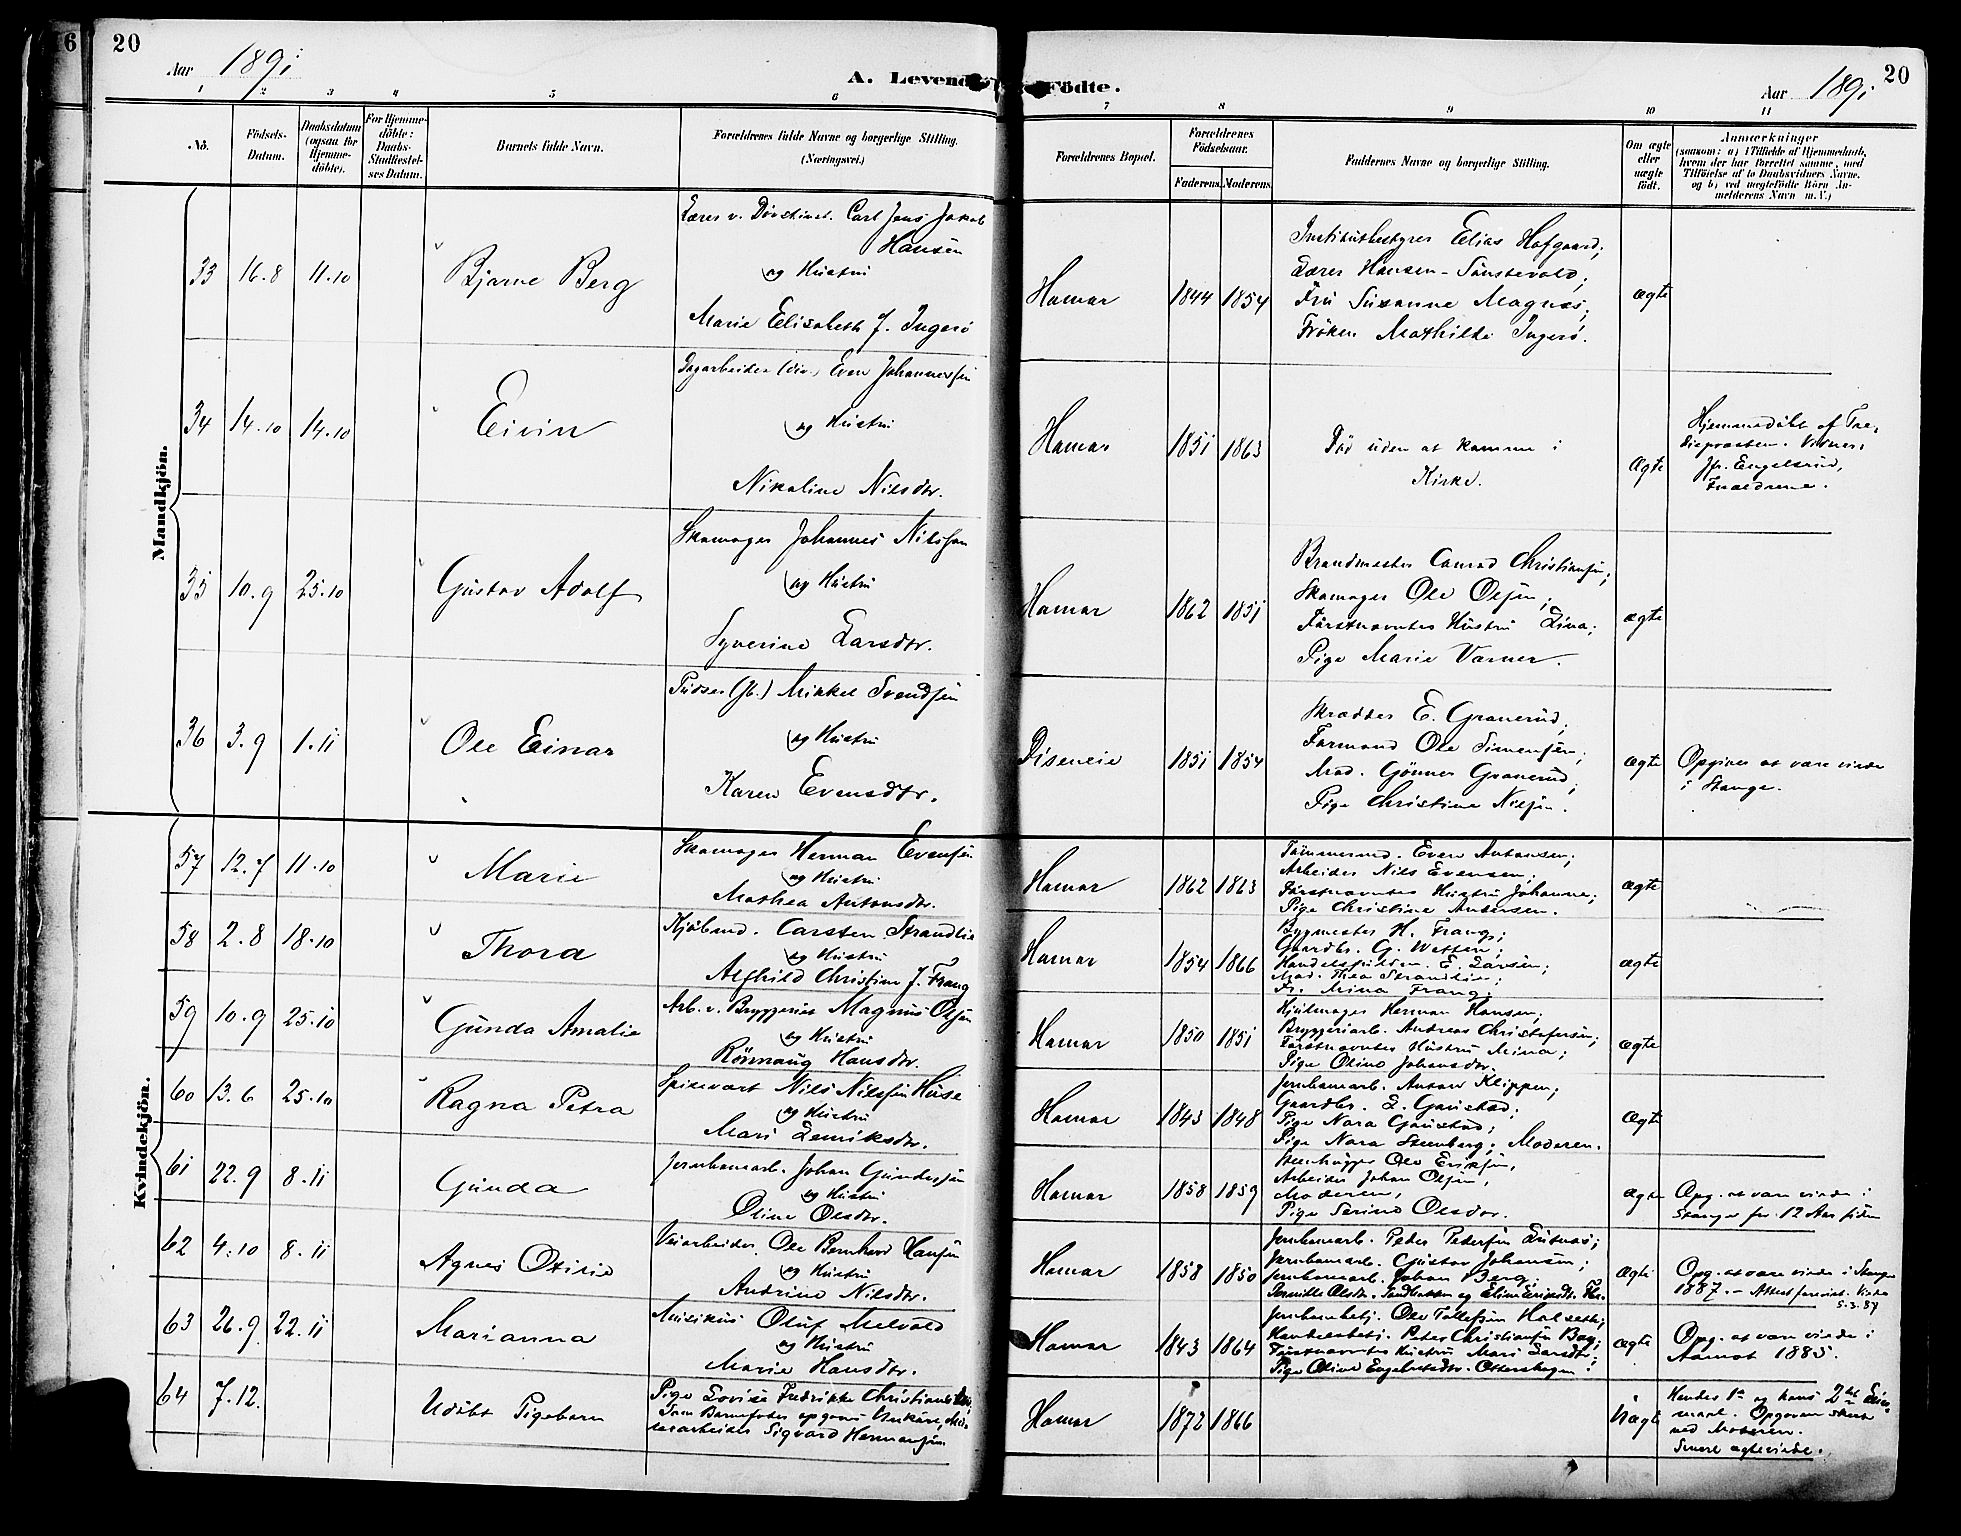 16
20
Aar 1891
A. Levende Födte.
Aar 1891
20
1 2 3 4 5 6 7 8 9 10 11
No.
Födsels-Datum.
Daabsdatum (ogsaa for Hjemme-döbte).
For Hjemme-döbte: Daabs-Stadfæstel-ses Datum.
Barnets fulde Navn.
Forældrenes fulde Navne og borgerlige Stilling. (Næringsvei.)
Forældrenes Bopæl.
Forældrenes Födselsaar.
Faderens. Moderens.
Faddernes Navne og borgerlige Stilling.
Om ægte eller uægte födt.
Anmærkninger
(saasom: a) i Tilfælde af Hjemmedaab,
hvem der har forrettet samme, med
Tilföielse af to Daabsvidners Navne,
og b) ved uægtefödte Börn An-
melderens Navn m.V.)
Mandkjön.
33 16.8 11.10 Bjarne Berg
Lærer v. Døvstinst. Carl Jens Jakob
Hansen
og Hustru
Marie Elisabeth J. Ingerö
Hamar 1844 1854
Institutbestyrer Elias Hofgaard;
Lærer Hansen-Tönstevold;
Fru Susanne Magnæs;
Fröken Mathilde Ingerö.
ægte
34 14.10 14.10 Eivin
Dagarbeider (div.) Even Johannessen
og Hustru
Nikoline Nilsdtr.
Hamar 1851 1863
Död uden at komme i
Kirke.
Ægte
Hjemmedöbt af
Vidner:
Jfr. Engelsrud,
Forældrene.
35 10.9 25.10 Gustav Adolf
Skomager Johannes Nilssen
og Hustru
Syverine Larsdtr.
Hamar 1862 1851
Brandmester Conrad Christiansen;
Skomager Ole Olsen;
Förstnævntes Hustru Lina;
Pige Marie Varner.
ægte
36 3.9 1.11 Ole Einar
Pudser (Jb.) Mikkel Svendsen
og Hustru
Karen Evensdtr.
Diseneie 1851 1854
Skrædder E. Granerud;
Formand Ole Simensen;
Mad. Gönner Granerud;
Pige Christine Nilsen.
ægte
Opgives at være viede
i Stange.
Kvindekjön.
57 12.7 11.10 Marie
Skomager Herman Evensen
og Hustru
Mathea Antonsdtr.
Hamar 1862 1863
Tömmermd. Even Antonsen;
Arbeider Nils Evensen;
Förstnævntes Hustru Johanne;
Pige Christine Andersen.
ægte
58 2.8 18.10 Thora
Kjöbmd. Carsten Strandlie
og Hustru
Alfhild Christine J. Frang
Hamar 1854 1866
Bygmester H. Frang;
Gaardbr. G. Wetten;
E. Larsen;
Mad. Thea Strandlie;
Fr. Mina Frang.
ægte
59 10.9 25.10 Gunda Amalie
Arb. v. Bryggeriet Magnus Olsen
og Hustru
Rönnaug Hansdtr.
Hamar 1850 1851
Hjulmager Herman Hansen;
Bryggeriarb. Andreas Christofersen;
Förstnævntes Hustru Mina;
Pige Oline Johansdtr.
ægte
60 13.6 25.10 Ragna Petra
Spisevært Nils Nilssen Huse
og Hustru
Mari Lenriksdtr.
Hamar 1843 1848
Jernbanearb. Anton Klippen;
Gaardbr. L. Gaustad;
Pige Nora Gaustad;
Pige Nora Steenberg; Moderen.
Ægte
61 22.9 8.11 Gunda
Jernbanearb. Johan Gundersen
og Hustru
Oline Olsdtr.
Hamar 1858 1859
Steenhugger Ole Eriksen,
Arbeider Johan Olsen,
Moderen,
Pige Serine Olsdtr.
ægte
Opg. at være viede i
Stange for 12 Aar siden
62 4.10 8.11 Agnes Otilie
Veiarbeider Ole Bernhard Hansen
og Hustru
Andrine Nilsdtr.
Hamar 1858 1850
Jernbanearb. Peder Pedersen Lutnæs;
Jernbanearb. Gustav Johansen;
Jernbanearb. Johan Berg;
Pernille Olsdtr.
Ægte
Opg. at være viede i Stange
1887. – Attest Viede
5.3.87
63 26.9 22.11 Marianna
Musikus Oluf Melvold
og Hustru
Marie Hansdtr.
Hamar 1843 1864
Jernbanebetj. Ole Tollefsen Holsether;
Handelsbetj. Peter Christiansen Bay;
Förstnævntes Hustru Mari Larsdtr;
Pige Oline Engebretsdtr. Ottershagen.
ægte
Opg. at være viede i
Aamot 1885.
64 7.12. Udöbt Pigebarn
Pige Lovise Fredrikke Christiansdtr.
Som Barnefader opgives Ungkarl,
arbeider Sigvard Hermansen
Hamar 1872 1866
Uægte
Hendes 1ste og hans 2det Leier-
maal. Opgaven skeet
ved Moderen.
Senere ægteviede.